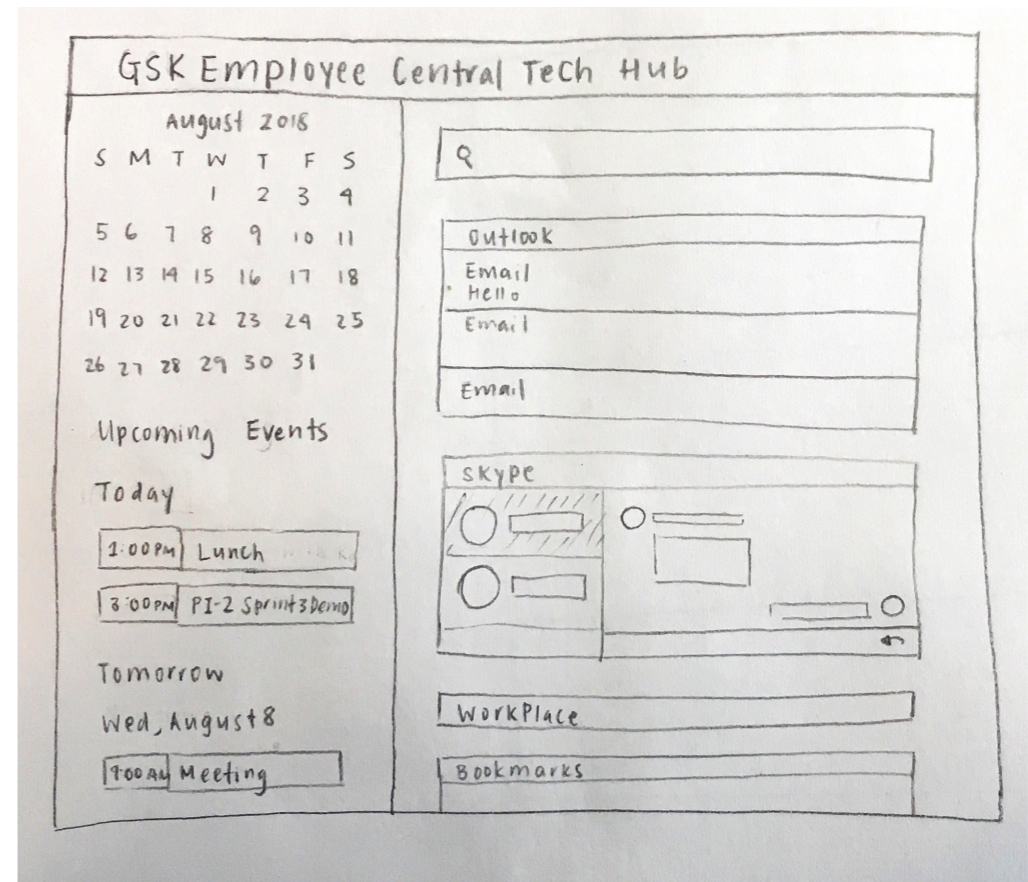 GSK Employee Central Tech Hub
August 2018
S M T W T F S
1 2 3 4
5 6 7 8 9 10 11
12 13 14 15 16 17 18
19 20 21 22 23 24 25
26 27 28 29 30 31
Upcoming Events
Today
1:00 PM Lunch
3:00 PM PI-2 Sprint 3 Demo
Tomorrow
Wed, August 8
9:00 AM Meeting
Outlook
Email
Hello
Email
Email
Skype
WorkPlace
Bookmarks